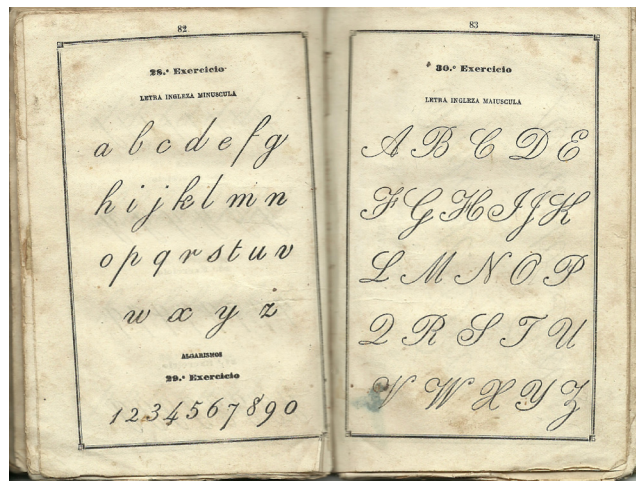 82
28.º Exercicio
LETRA INGLEZA MINUSCULA
a b c d e f g
h i j k l m n
o p q r s t u v
w x y z
ALGARISMOS
29.º Exercicio
1 2 3 4 5 6 7 8 9 0
83
30.º Exercicio
LETRA INGLEZA MAIUSCULA
A B C D E
F G H I J K
L M N O P
Q R S T U
V W X Y Z